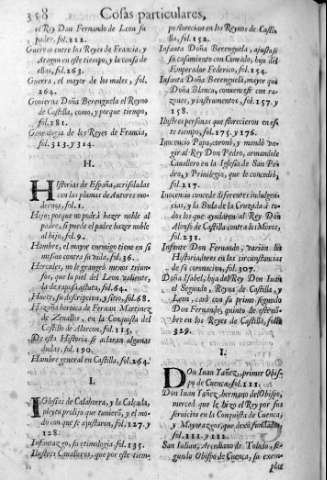 358 Cosas particulares,
el Rey Don Fernando de Leon su
padre, fol. 212.
Guerras entre los Reyes de Francia, y
Aragon en este tiempo, y la causa de
ellas, fol. 263.
Guerra, el mayor de los males, fol.
264.
Govierna Doña Berenguela el Reyno
de Castilla, como, y porque tiempo,
fol. 281.
Genealogia de los Reyes de Francia,
fol. 313. y 314.
H.
Historias de España,
con las plumas de Autores mo-
dernos, fol. 1.
Hijo; porque no podrà hazer noble al
padre, si puede el padre hazer noble
al hijo, fol. 9.
Hombre, el mayor enemigo tiene en si
mismo contra su vida, fol. 36.
Hercules, no le grangeò menos triun-
fos, que la piel del Leon valiente,
la de raposa astuta, fol. 64.
Huete, su descripcion, y sitio, fol. 68.
Hazaña heroica de Fernan Martinez
de Zevallos, en la Conquista del
Castillo de Alarcon, fol. 115.
De esta Historia se aclaran algunas
dudas, fol. 190.
Hambre general en Castilla, fol. 264.
I.
Obispos de Calahorra, y la Calçada,
pleytos prolijo que tuvierõ, y el mo-
do con que se ajustaron, fol. 127. y
128.
Infantazgo, su etimologia, fol. 135.
Ilustres Cavalleros, que por este tiem-
po florecian en los Reynos de Casti-
lla, fol. 152.
Infanta Doña Berenguela, ajustase
su casamiento con Conrado, hijo del
Emperador Federico, fol. 154.
Infanta Doña Berenguela, mayor que
Doña Blanca, convencese con ra-
zones, y instrumentos, fol. 157. y
158.
Ilustres personas que florecieron en es-
te tiempo, fol. 175. y 176.
Inocencio Papa, coronò, y mandò
al Rey Don Pedro, armandole
Cavallero en la Iglesia de San
dro, y Privilegio, que le concediò,
fol. 217.
Inocencio concede diferentes indulgen-
cias, y la Bula de la Cruzada à to-
dos los que ayudaron al Rey Don
Alonso de Castilla contra los Moros,
fol. 231.
Infante Don Fernando, varian los
Historiadores en las circunstancias
de su coronacion, fol. 307.
Doña Isabel, hija del Rey Don Iuan
el Segundo, Reyna de Castilla, y
Leon, casò con su primo segundo
Don Fernando, quinto de este nom-
bre en los Reynos de Castilla, fol.
329.
I.
Don Iuan Yañez, primer Obis-
po de Cuenca, fol. 111.
Don Iuan Yañez, hermano del Obispo,
merced que le hizo el Rey por sus
servicios en la Conquista de Cuenca,
y Mayorazgo, que dexò fundado,
fol. 111. y 112.
San Iulian, Arcediano de Toledo, se-
gundo Obispo de Cuenca, su exem-
plar